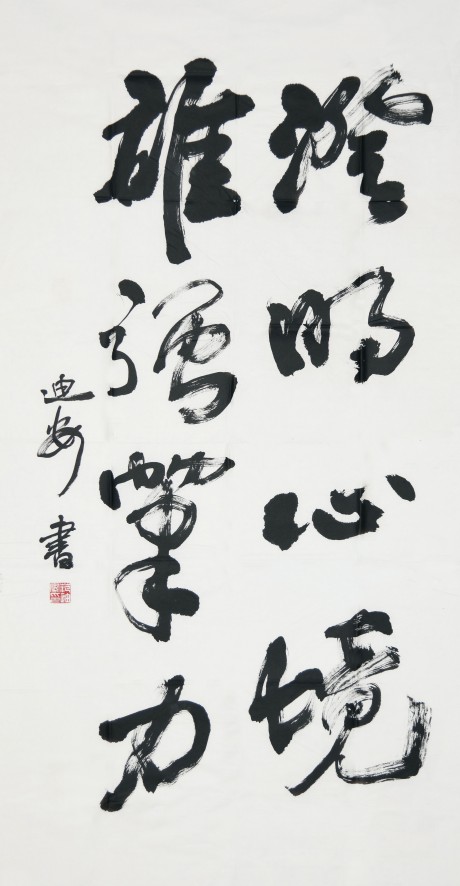 澄明心境
雄强筆力
迪安書